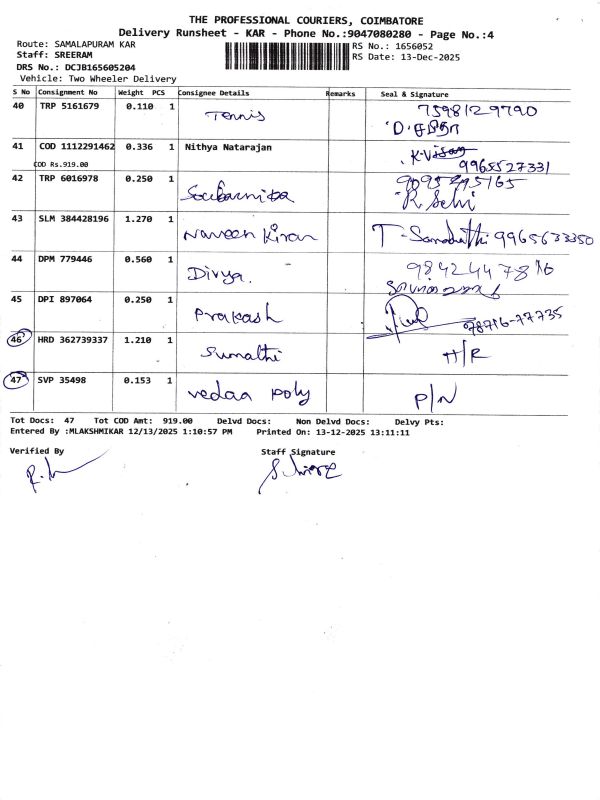 THE PROFESSIONAL COURIERS, COIMBATORE
Delivery Runsheet - KAR - Phone No.:9047080280 - Page No.:4
Route: SAMALAPURAM KAR
RS No.: 1656052
Staff: SREERAM
RS Date: 13-Dec-2025
DRS No.: DCJB165605204
Vehicle: Two Wheeler Delivery
S No Consignment No Weight PCS Consignee Details Remarks Seal & Signature
40 TRP 5161679 0.110 1 Tennis 7598129790
41 COD 1112291462 0.336 1 Nithya Natarajan
COD Rs.919.00 9965527331
42 TRP 6016978 0.250 1
R Selvi
43 SLM 384428196 1.270 1 Naveen Kiran 9965633350
44 DPM 779446 0.560 1 Divya.
45 DPI 897064 0.250 1 Prakash 98716-77735
46 HRD 362739337 1.210 1 Sumathi H/R
47 SVP 35498 0.153 1 vedaa poly P/N
Tot Docs: 47 Tot COD Amt: 919.00 Delvd Docs: Non Delvd Docs: Delvy Pts:
Entered By :MLAKSHMIKAR 12/13/2025 1:10:57 PM Printed On: 13-12-2025 13:11:11
Verified By Staff Signature